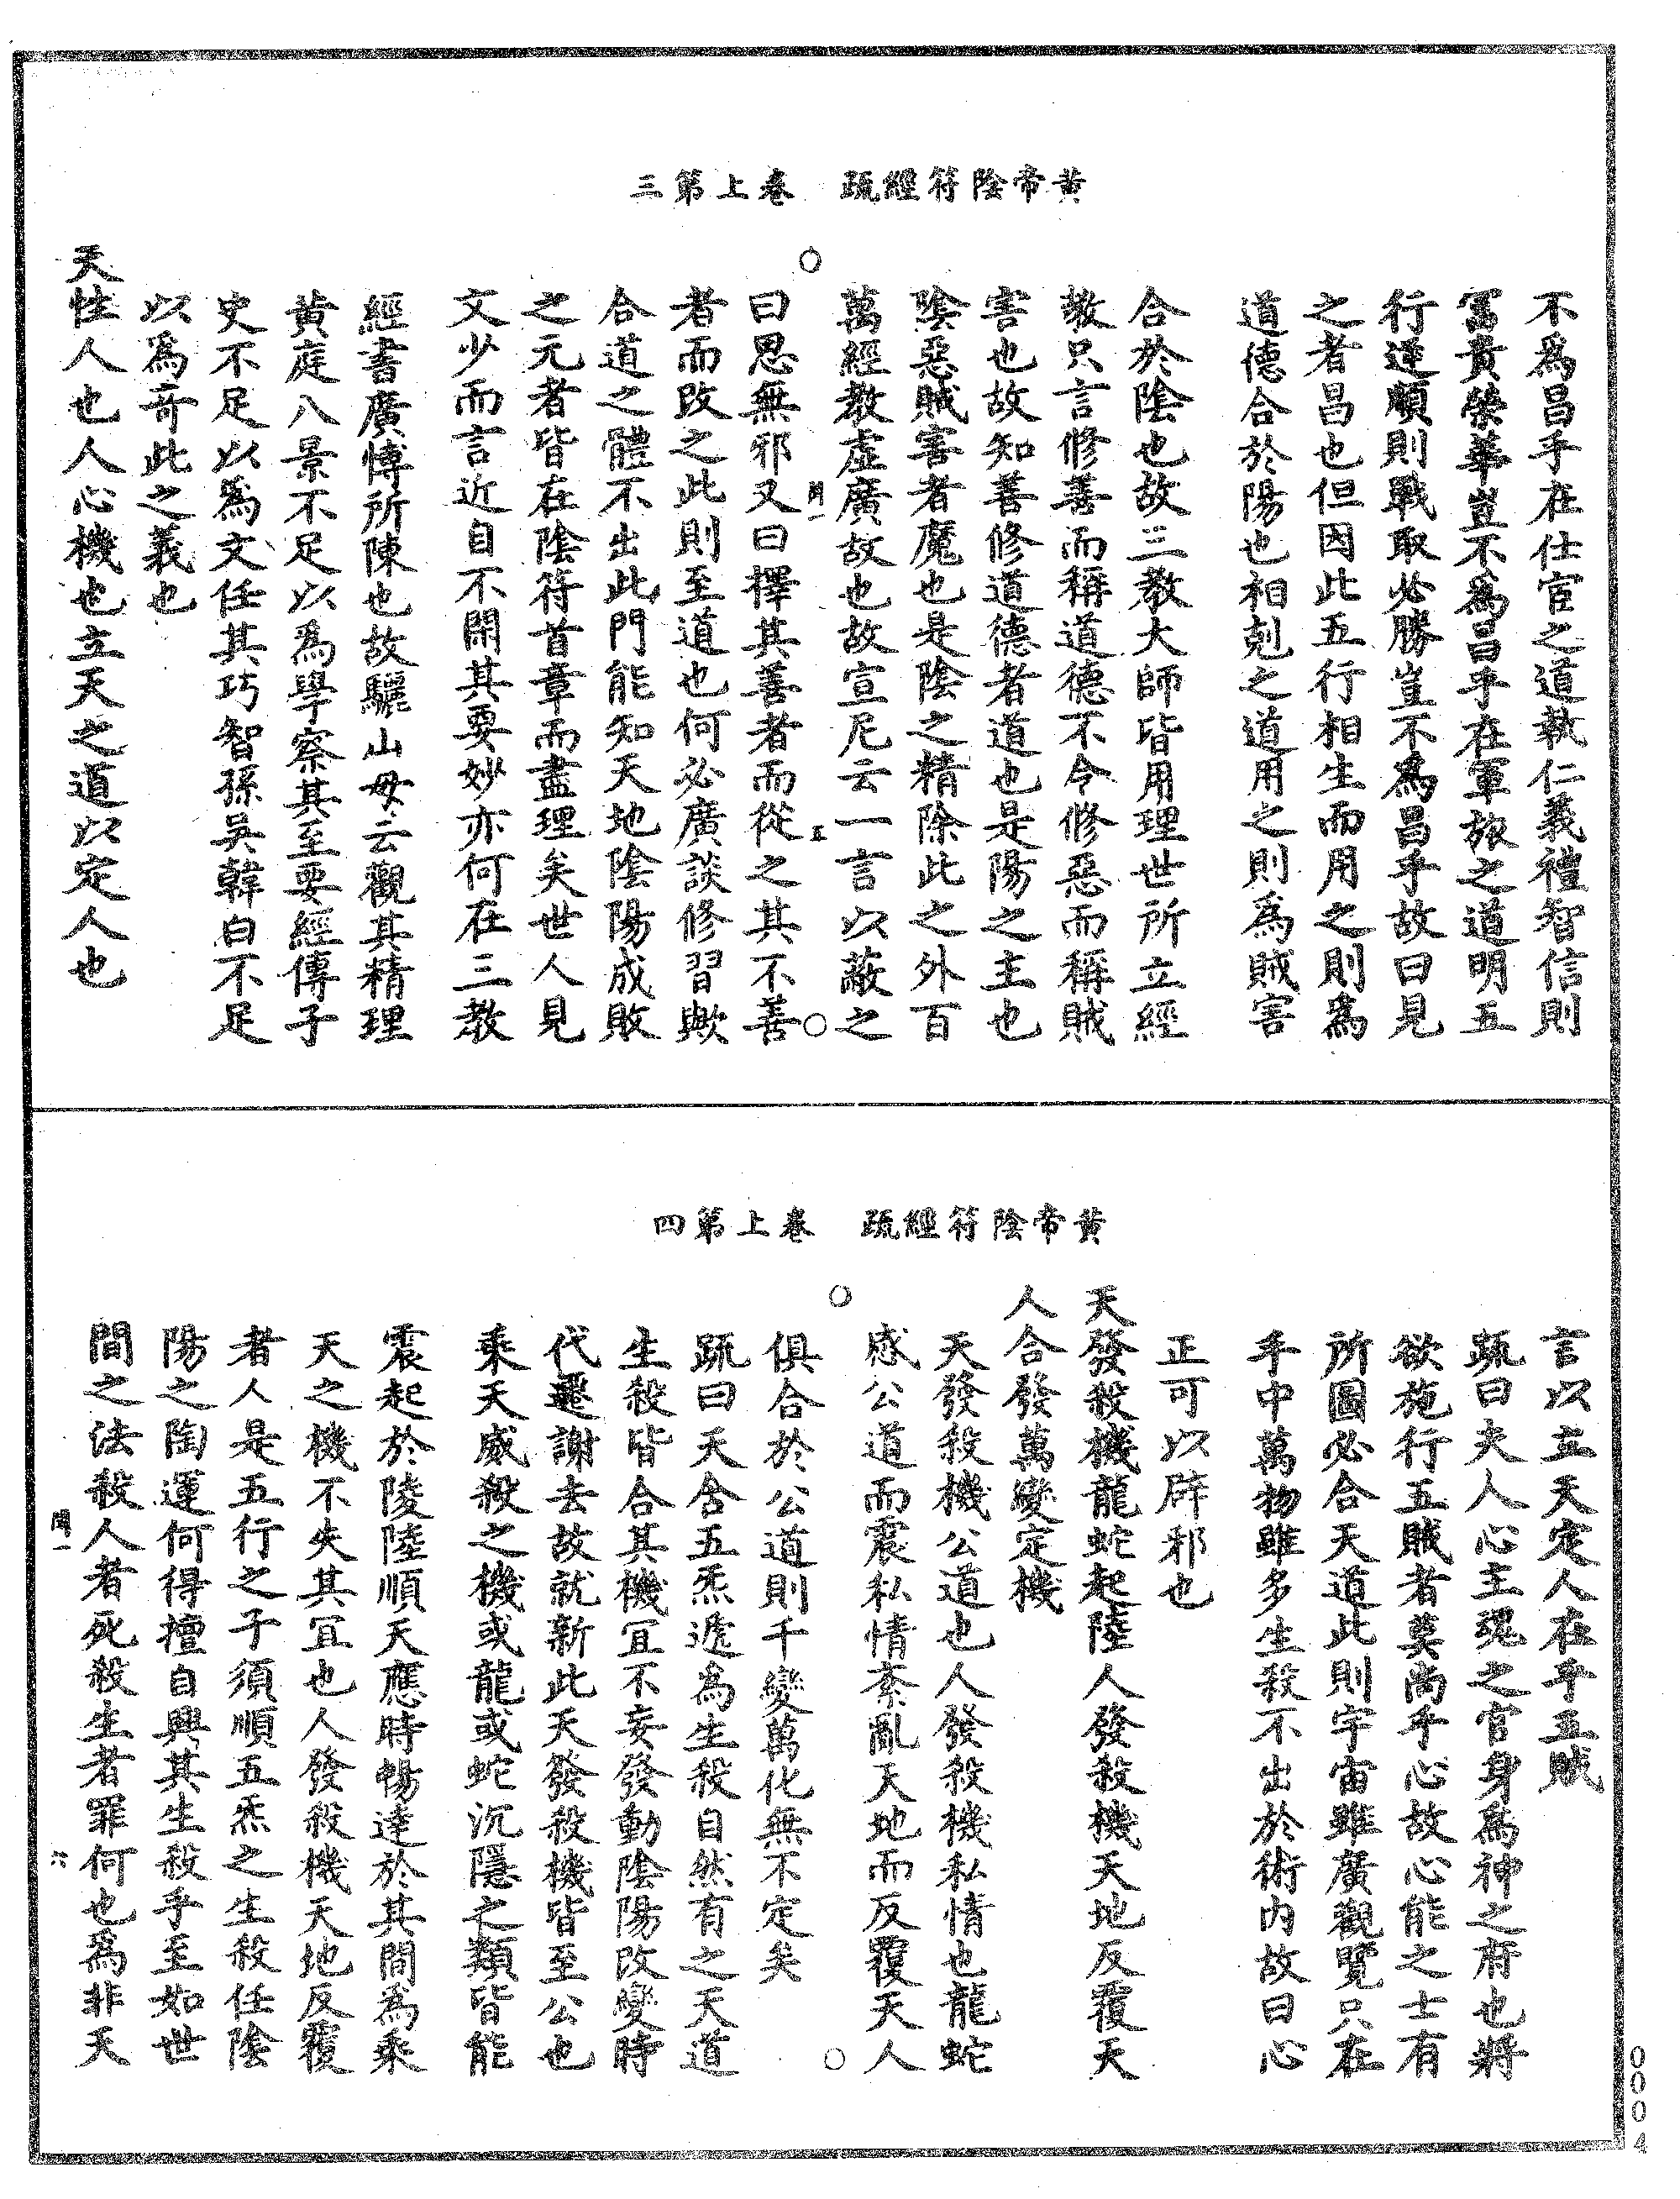 黃帝陰符經疏　卷上第三
不爲昌乎在仕宦之道執仁義禮智信則
冨貴榮華豈不爲昌乎在軍旅之道明五
行逆順則戰取必勝豈不爲昌乎故曰見
之者昌也但因此五行相生而用之則爲
道德合於陽也相剋之道用之則爲賊害
合於陰也故三教大師皆用理世所立經
教只言修善而稱道德不令修惡而稱賊
害也故知善修道德者道也是陽之主也
陰惡賊害者魔也是陰之精除此之外百
萬經教虛廣故也故宣尼云一言以蔽之
閏一　五
曰思無邪又曰擇其善者而從之其不善
者而改之此則至道也何必廣談修習歟
合道之體不出此門能知天地陰陽成敗
之元者皆在陰符首章而盡理矣世人見
文少而言近自不閑其要妙亦何在三教
經書廣博所陳也故驪山母云觀其精理
黃庭八景不足以爲學察其至要經傳子
史不足以爲文任其巧智孫吳韓白不足
以爲奇此之義也
天性人也人心機也立天之道以定人也
黃帝陰符經疏　卷上第四
言以立天定人在乎五賊
疏曰夫人心主魂之官身爲神之府也將
欲施行五賊者莫尚乎心故心能之士有
所圖必合天道此則宇宙雖廣觀覽只在
手中萬物雖多生殺不出於術內故曰心
正可以辟邪也
天發殺機龍蛇起陸人發殺機天地反覆天
人合發萬變定機
天發殺機公道也人發殺機私情也龍蛇
感公道而震私情紊亂天地而反覆天人
俱合於公道則千變萬化無不定矣
疏曰天含五炁遞爲生殺自然有之天道
生殺皆合其機宜不妄發動陰陽改變時
代遷謝去故就新此天發殺機皆至公也
乘天威殺之機或龍或蛇沉隱之類皆能
震起於陵陸順天應時暢達於其間爲乘
天之機不失其宜也人發殺機天地反覆
者人是五行之子須順五炁之生殺任陰
陽之陶運何得擅自興其生殺乎至如世
間之法殺人者死殺生者罪何也爲非天
閏一　六
0004